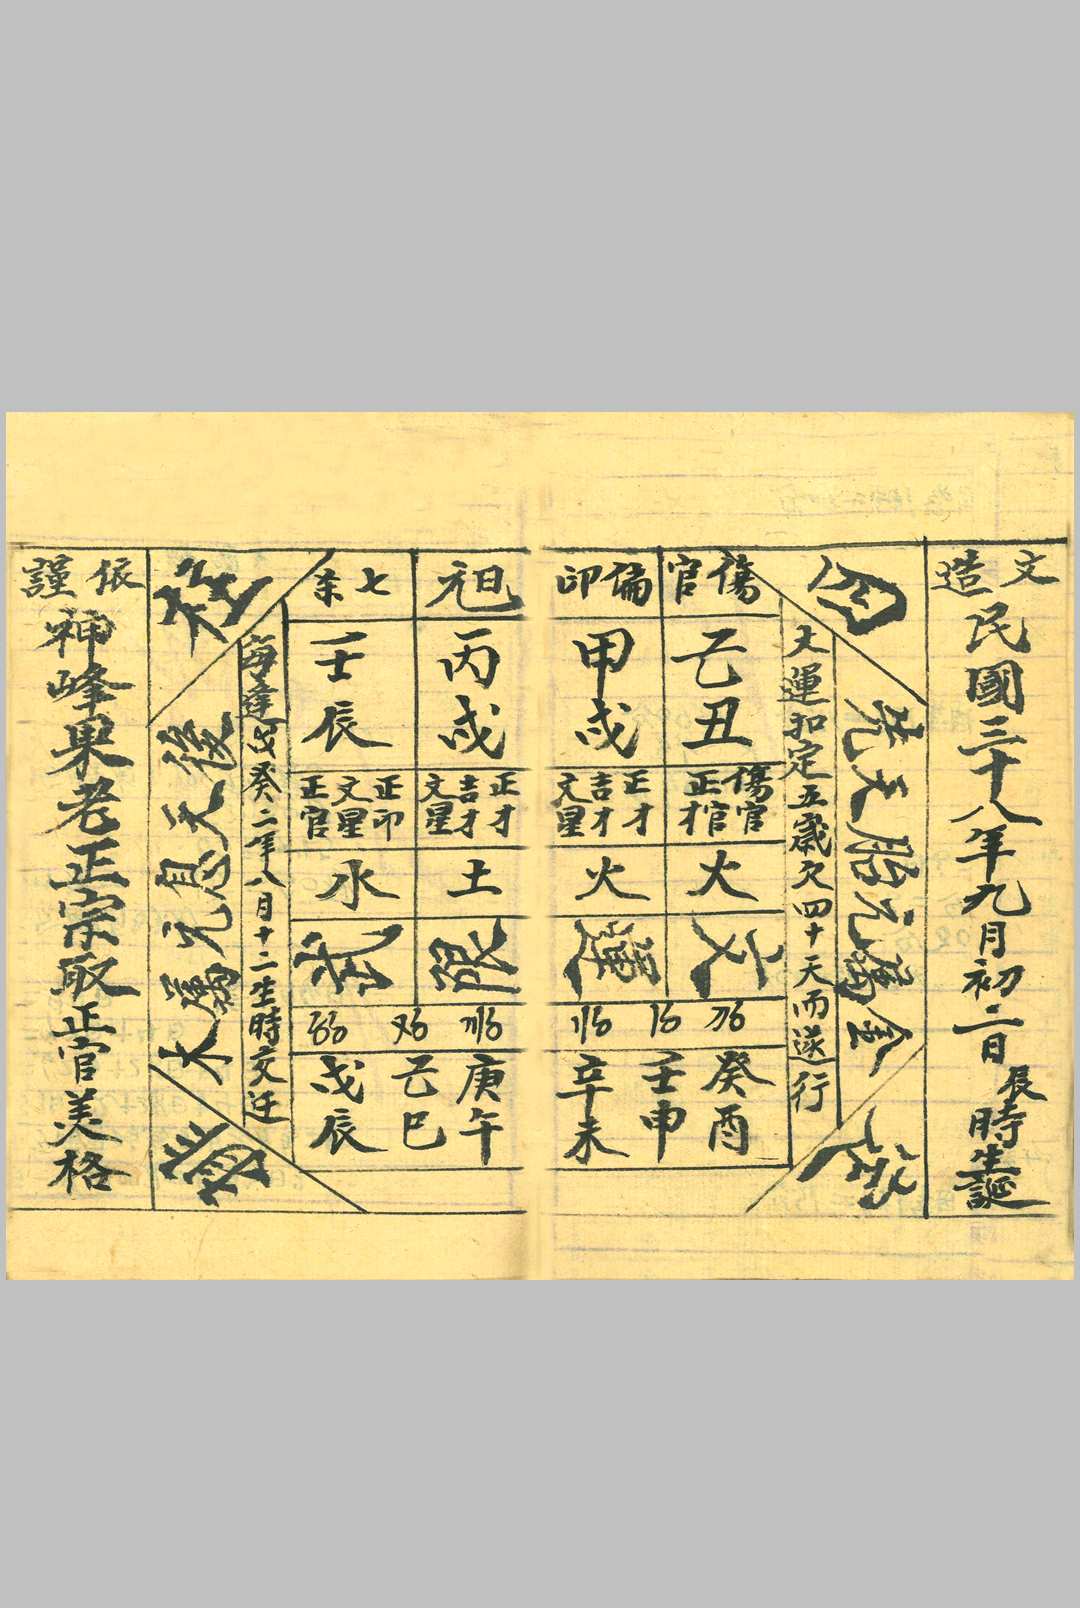 文造
民國三十八年九月初二日辰時生誕
大運扣定五歲欠四十天而遂行
傷官
己丑
傷官
正官
正才
火
癸酉
壬申
偏印
甲戌
正才
吉才
文星
火
運
辛未
元旦
丙戌
正才
吉才
文星
土
限
庚午
己巳
七杀
壬辰
正印
文星
正官
水
戊辰
每逢戊癸二年八月十二生時交迁
後天息元屬木
依謹
神峰果老正宗取正官美格